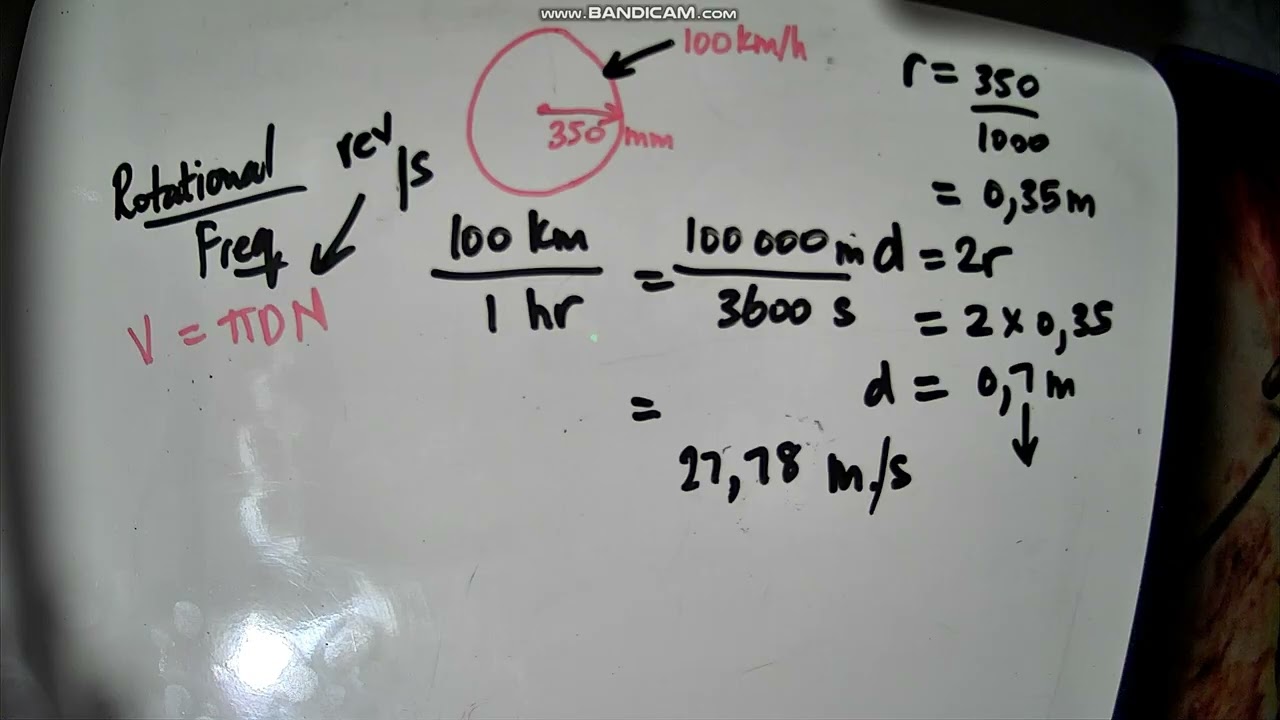 www.BANDICAM.com
100 km/h
350 mm
Rotational
Freq.
rev/s
V = πDN
100 km
1 hr
= 100 000 m
3600 s
=
27,78 m/s
r = 350
1000
= 0,35 m
d = 2r
= 2 × 0,35
d = 0,7 m